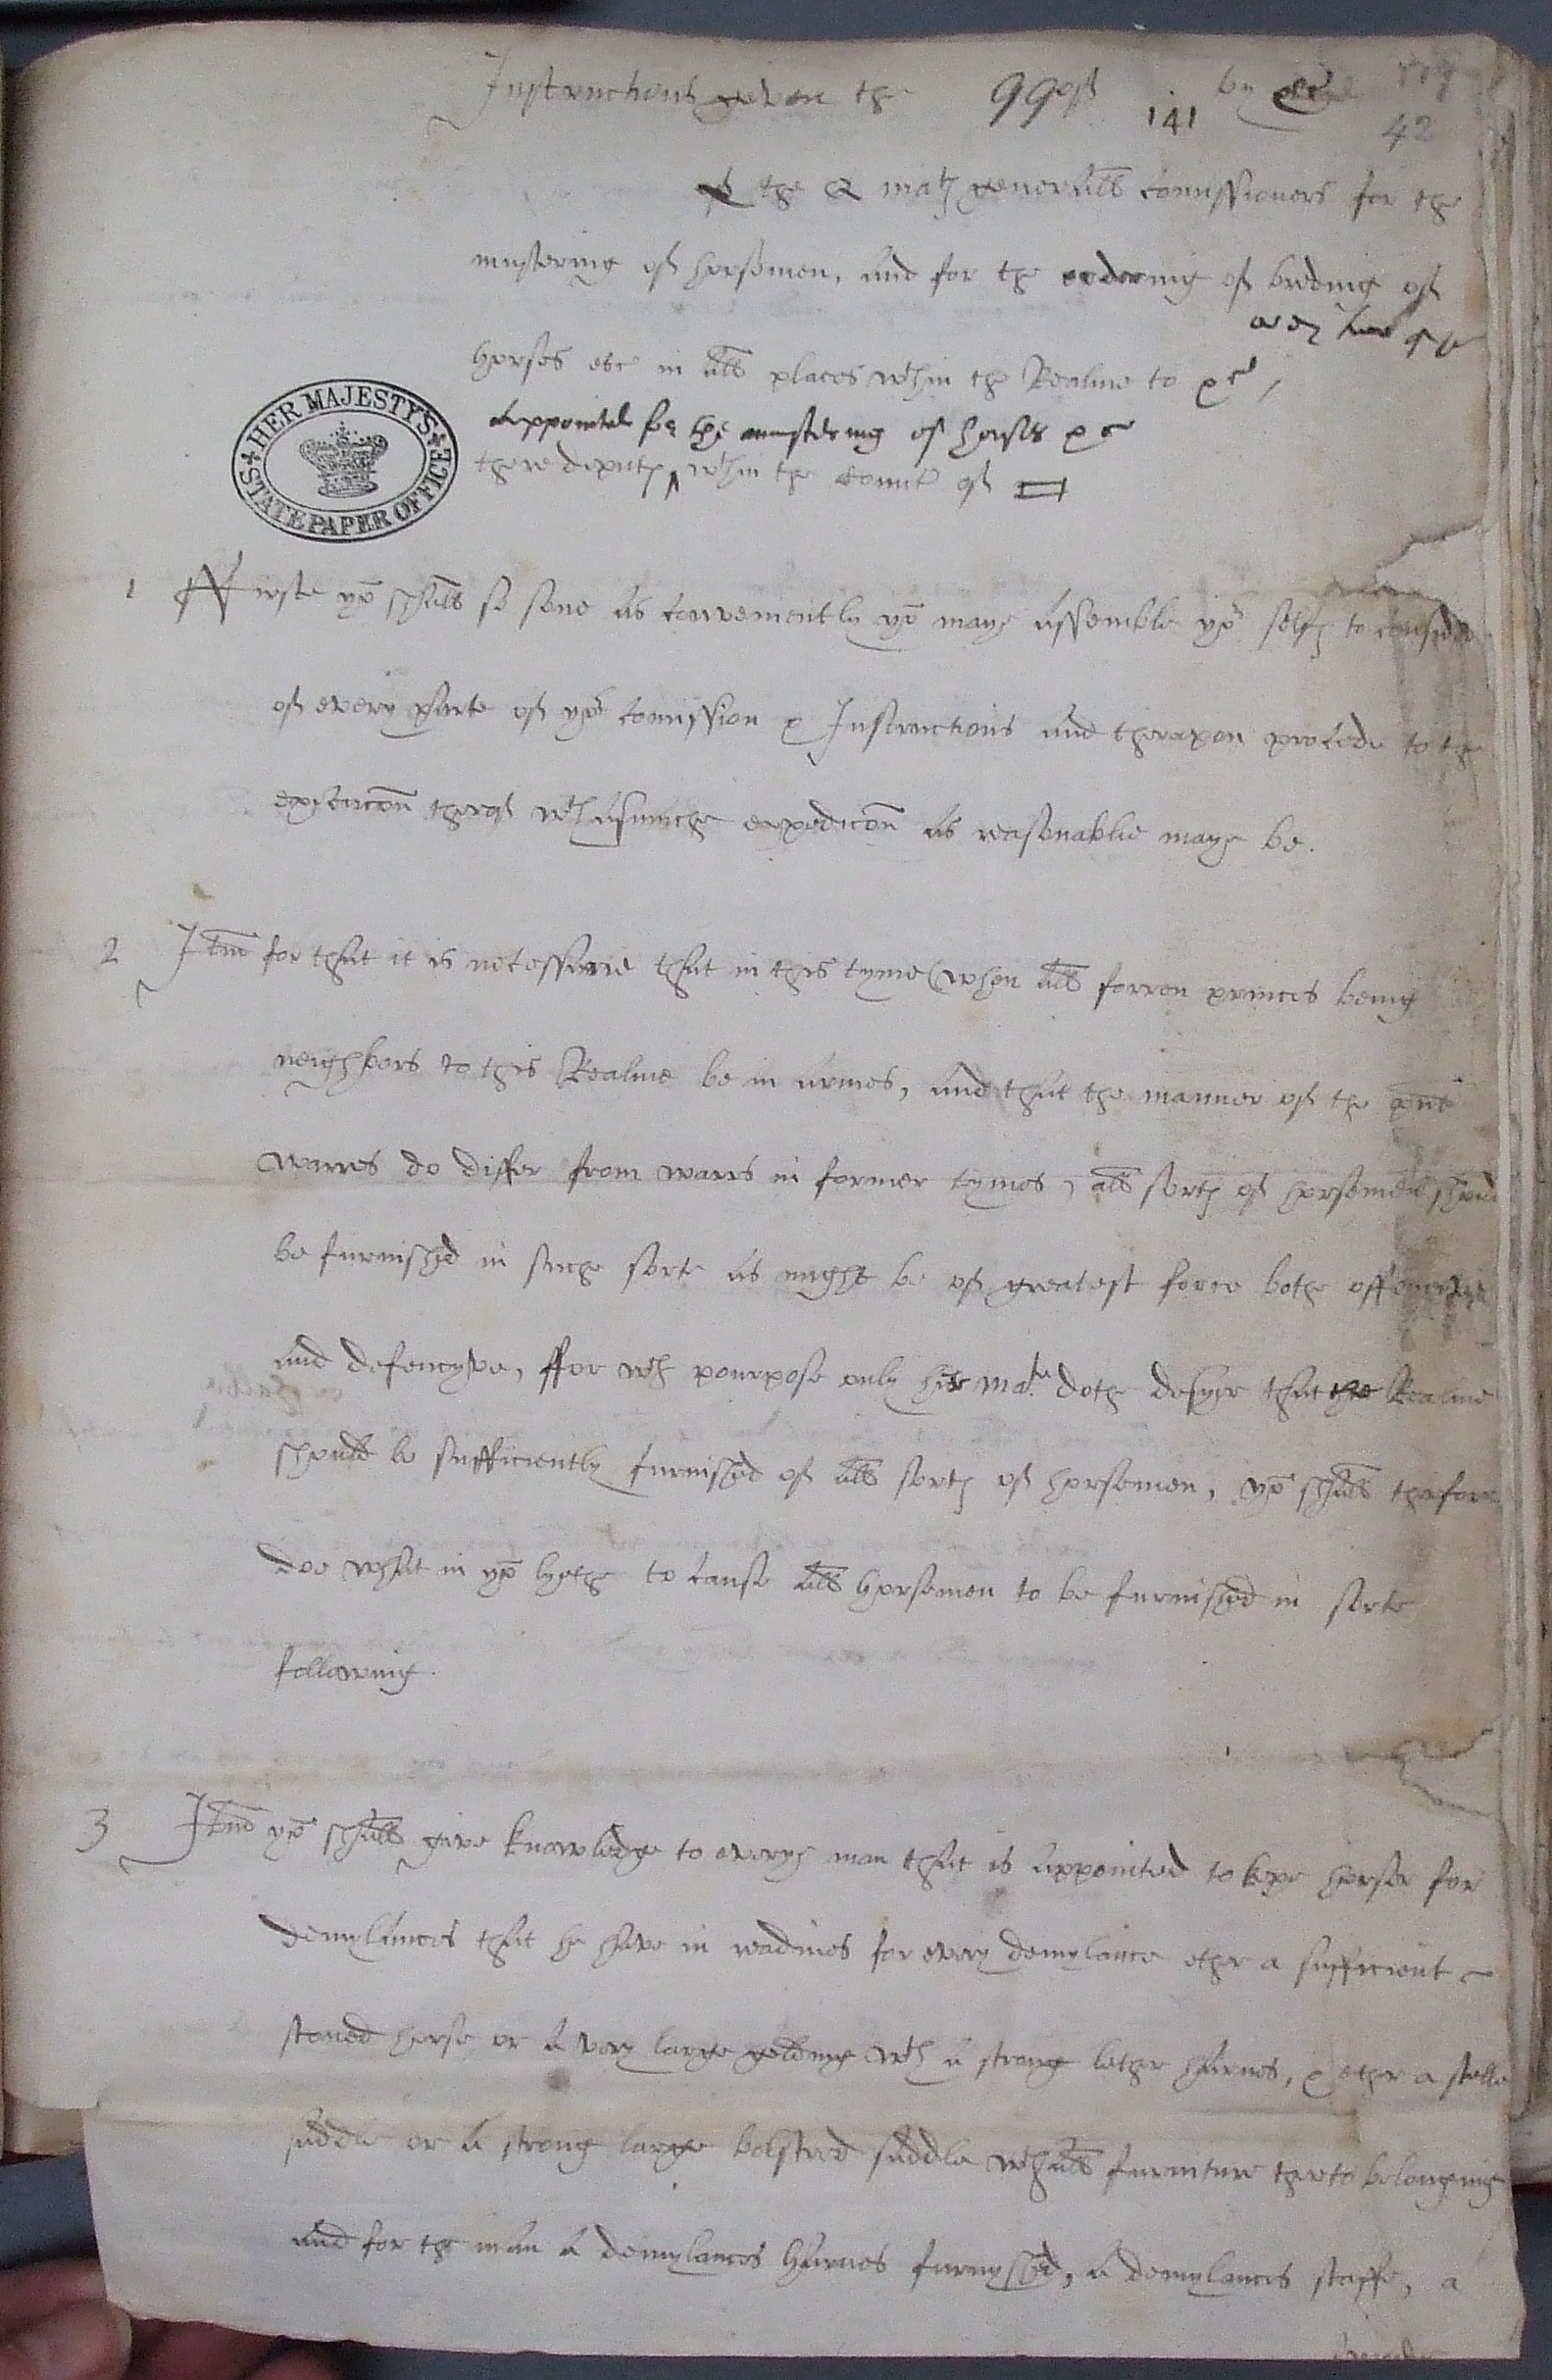 Instructions geven the 99 of by
141
42
the Q matꝭ generall comissioners for the
musteringe of horsemen, and for the ordering of breding of
horses etc in all places wthin the Realme to
appointed for the mustering of horses
there deputꝭ ^ wthin the Countie of
HER MAJESTY'S STATE PAPER OFFICE
1 ffirste yo shall so sone as conveniently yo maye assemble yor selfꝭ to consider
of every parte of yor comission & Instructions and therapon procede to the
execucon therof wth asmuche expedicon as reasonablie maye be.
2 Itm for that it is necessarie that in this tyme (when all forren princes being
neighbors to this Realme be in armes, and that the manner of the pnt
warres do differ from warrs in former tymes, all sortꝭ of horsemen should
be furnished in suche sorte as might be of greatest force bothe offencyve
and defencyve, ffor wch pourpose only her Matie dothe desyre that the Realme
should be sufficiently furnished of all sortꝭ of horsemen, yo shall therfore
doe what in yo lyethe to cause all horsemen to be furnished in sorte
following.
3 Itm yo shall give knowledge to everye man that is appointed to kepe horses for
demylances that he have in readines for every demylance ether a sufficient
stoned horse or a very large gelding wth a strong lether harnes, & ether a stelle
saddle or a strong large bolstred saddle wth all furniture therto belonging
and for the man a demylances harnes furnyshed, a demylances staffe, a